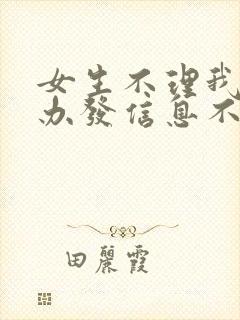 女生不理我
办發信息不
田麗霞